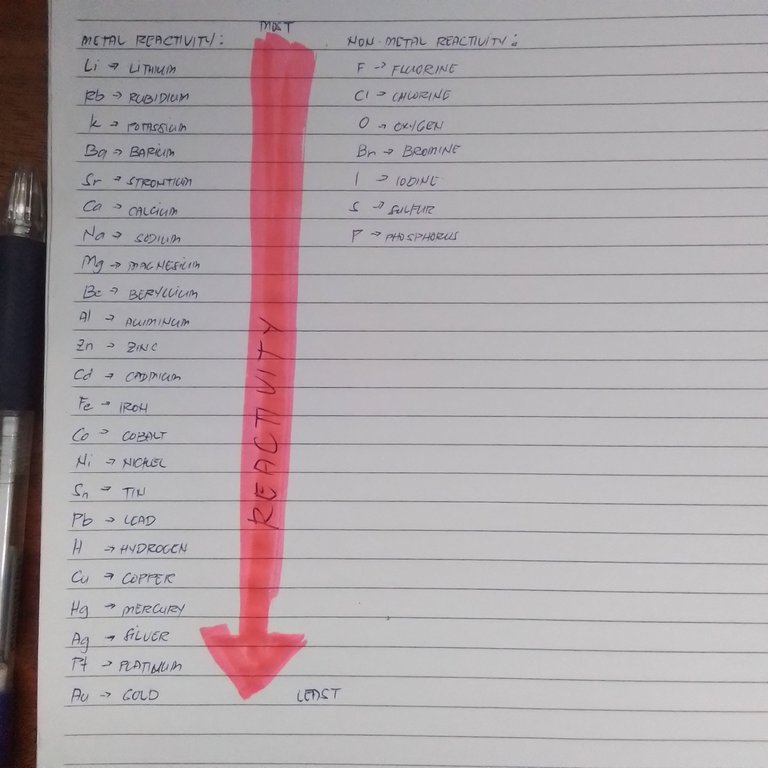 MOST
METAL REACTIVITY:
Li → LITHIUM
Rb → RUBIDIUM
K → POTASSIUM
Ba → BARIUM
Sr → STRONTIUM
Ca → CALCIUM
Na → SODIUM
Mg → MAGNESIUM
Be → BERYLLIUM
Al → ALUMINUM
Zn → ZINC
Cd → CADMIUM
Fe → IRON
Co → COBALT
Ni → NICKEL
Sn → TIN
Pb → LEAD
H → HYDROGEN
Cu → COPPER
Hg → MERCURY
Ag → SILVER
Pt → PLATINUM
Au → GOLD
REACTIVITY
LEAST
NON-METAL REACTIVITY:
F → FLUORINE
Cl → CHLORINE
O → OXYGEN
Br → BROMINE
I → IODINE
S → SULFUR
P → PHOSPHORUS